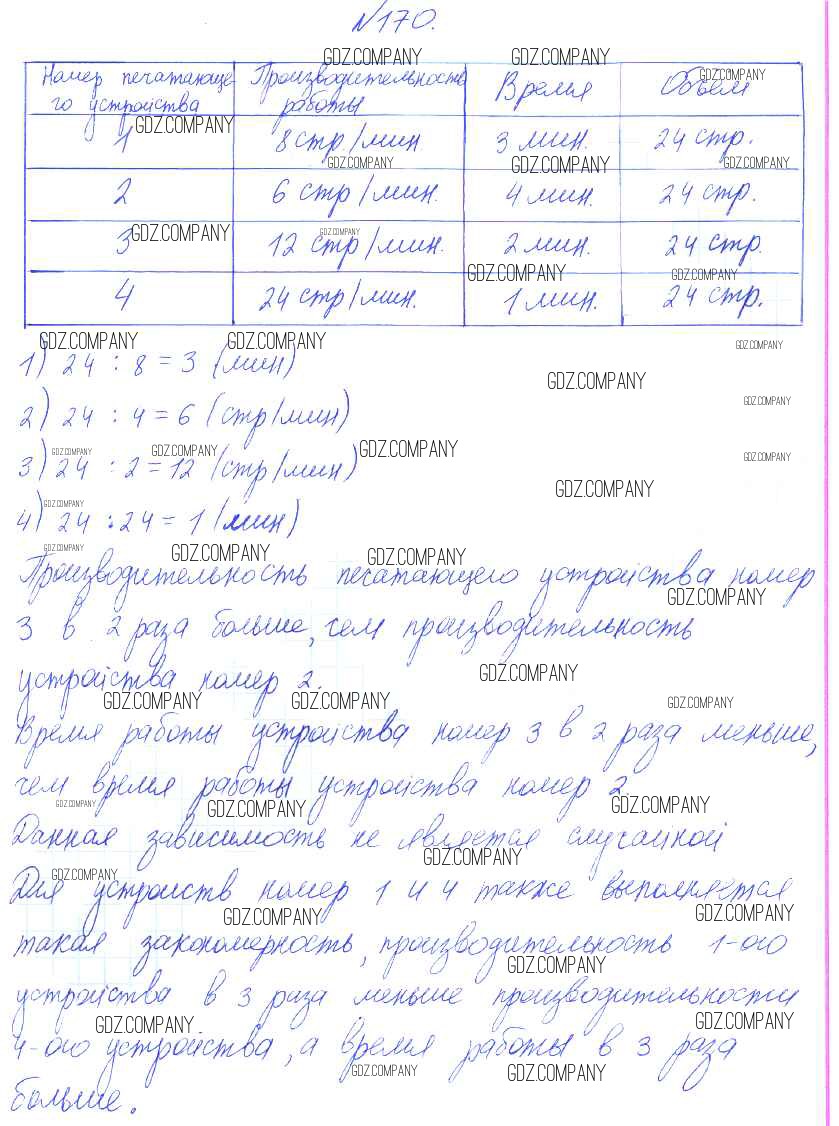 №170.
Номер печатающе- Производительность Время Объём
го устройства работы
1 8 стр/мин. 3 мин. 24 стр.
2 6 стр/мин. 4 мин. 24 стр.
3 12 стр/мин. 2 мин. 24 стр.
4 24 стр/мин. 1 мин. 24 стр.
1) 24 : 8 = 3 (мин)
2) 24 : 4 = 6 (стр/мин)
3) 24 : 2 = 12 (стр/мин)
4) 24 : 24 = 1 (мин)
Производительность печатающего устройства номер
3 в 2 раза больше, чем производительность
устройства номер 2.
Время работы устройства номер 3 в 2 раза меньше,
чем время работы устройства номер 2.
Данная зависимость не является случайной
Для устройств номер 1 и 4 также выполняется
такая закономерность, производительность 1-ого
устройства в 3 раза меньше производительности
4-ого устройства, а время работы в 3 раза
больше.
GDZ.COMPANY